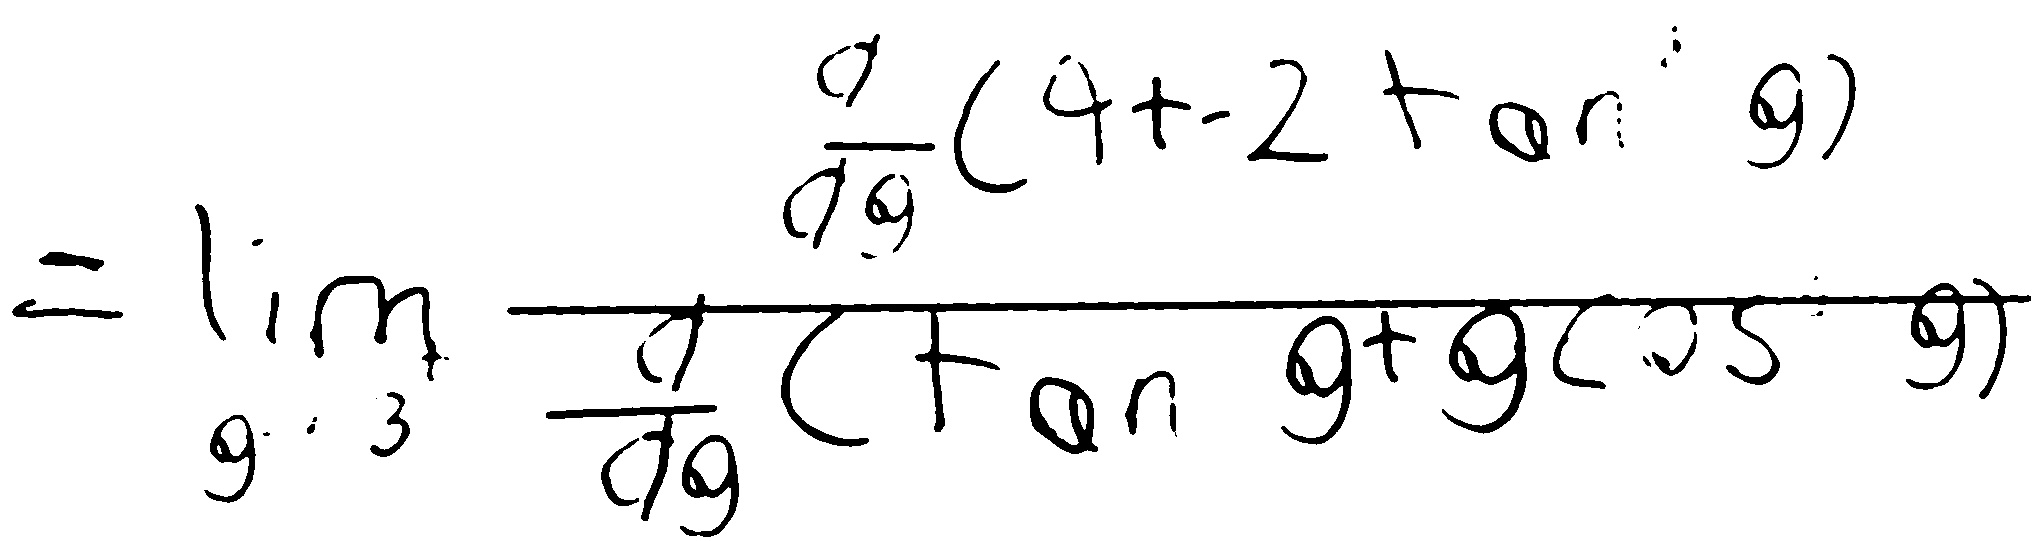 = \lim_{g \to 3} \frac{\frac{d}{dg}(4+-2\tan g)}{\frac{d}{dg}(\tan g+g\cos g)}